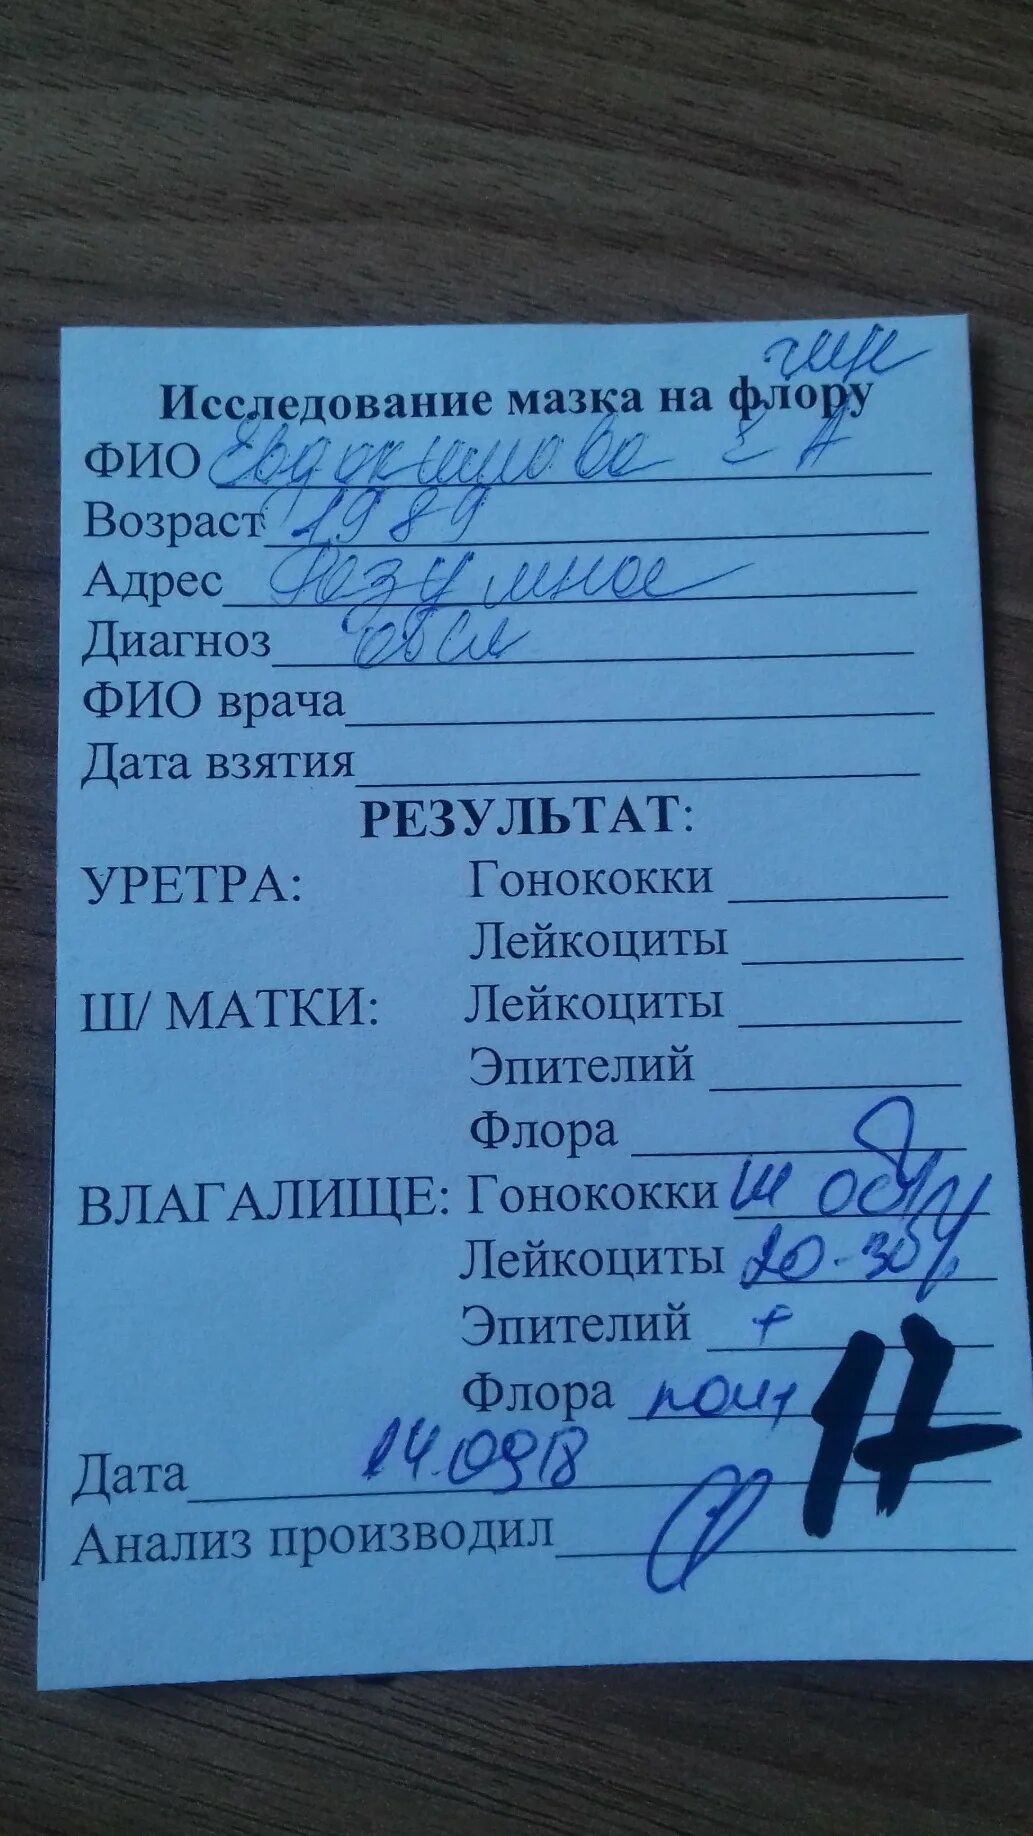 Исследование мазка на флору
ФИО Евдокимова Е А
Возраст 1989
Адрес
Диагноз обсл
ФИО врача
Дата взятия
РЕЗУЛЬТАТ:
УРЕТРА: Гонококки
Лейкоциты
Ш/ МАТКИ: Лейкоциты
Эпителий
Флора
ВЛАГАЛИЩЕ: Гонококки
Лейкоциты 20-30
Эпителий +
Флора
17
Дата 14.0918
Анализ производил